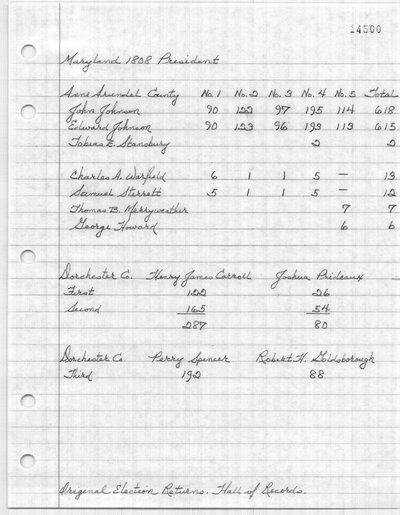 14500
Maryland 1808 President
Anne Arundel County No. 1 No. 2 No. 3 No. 4 No. 5 Total
John Johnson 90 122 97 195 114 618
Edward Johnson 90 123 96 193 113 615
Tobias E. Stansbury 2 2
Charles A. Warfield 6 1 1 5 — 13
Samuel Sterrett 5 1 1 5 — 12
Thomas B. Merryweather 7 7
George Howard 6 6
Dorchester Co. Henry James Carroll Joshua Prideaux
First 122 26
Second 165 54
287 80
Dorchester Co Perry Spencer Robert H. Goldsborough
Third 192 88
Original Election Returns. Hall of Records.